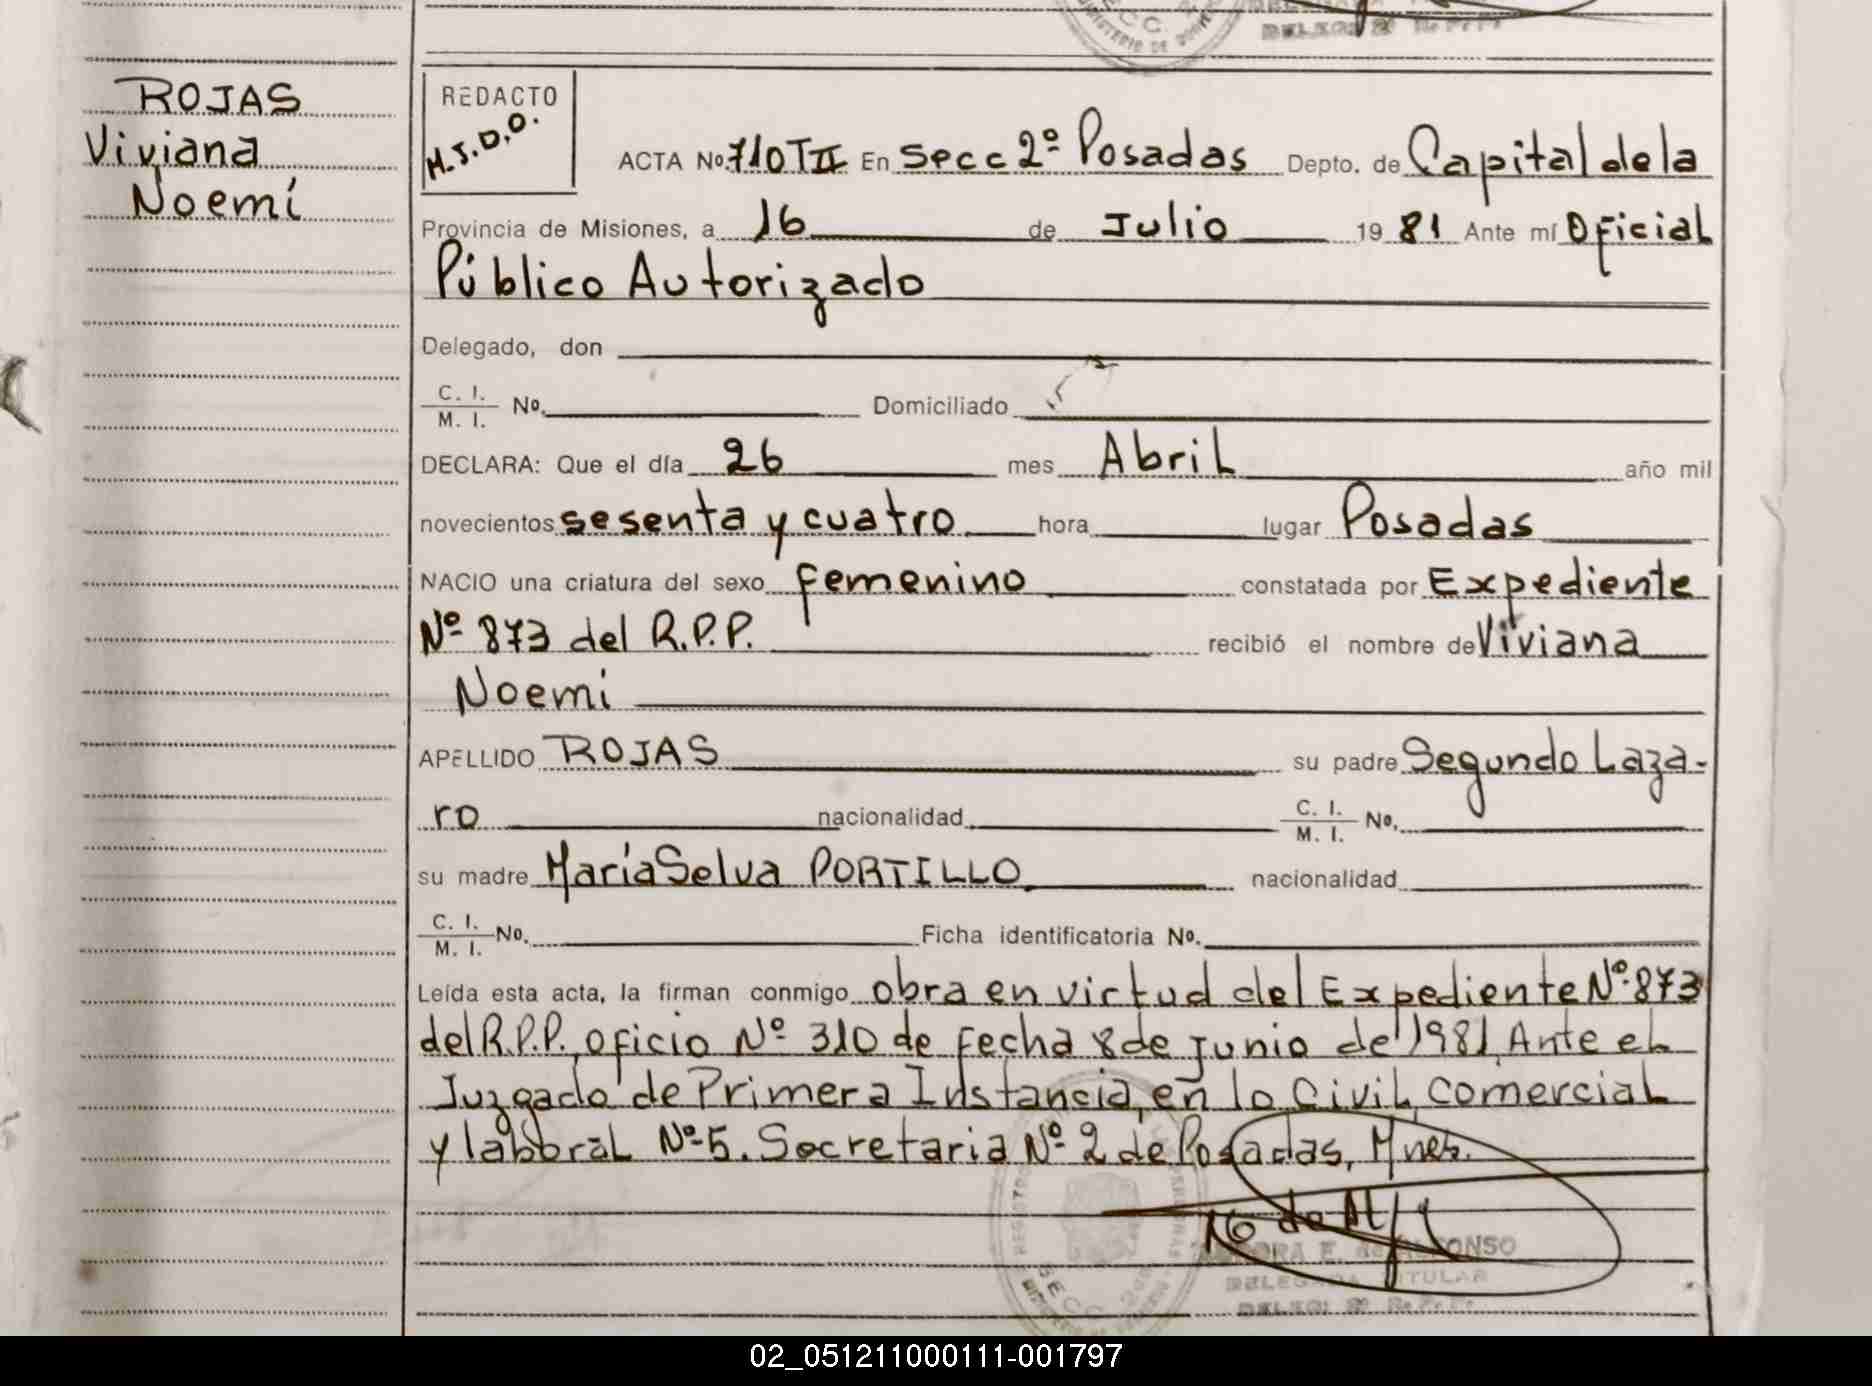 DELEG. 2ª R.P.P.
ROJAS
Viviana
Noemí
REDACTO
M.J.D.O.
ACTA No. 710 TII En Secc 2º Posadas Depto. de Capital de la
Provincia de Misiones, a 16 de Julio 1981 Ante mí Oficial
Público Autorizado
Delegado, don
C. I.
M. I. No. Domiciliado
DECLARA: Que el día 26 mes Abril año mil
novecientos sesenta y cuatro hora lugar Posadas
NACIO una criatura del sexo femenino constatada por Expediente
Nº 873 del R.P.P. recibió el nombre de Viviana
Noemi
APELLIDO ROJAS su padre Segundo Laza-
ro nacionalidad C. I. M. I. No.
su madre María Selva PORTILLO nacionalidad
C. I. M. I. No. Ficha identificatoria No.
Leída esta acta, la firman conmigo obra en virtud del Expediente Nº 873
del R.P.P., oficio Nº 310 de fecha 8 de junio de 1981, Ante el
Juzgado de Primera Instancia, en lo Civil, comercial
y laboral Nº 5. Secretaria Nº 2 de Posadas, Mnes.
E. de ALFONSO
DELEGADA TITULAR
DELEG. 2ª R.P.P.
02_051211000111-001797